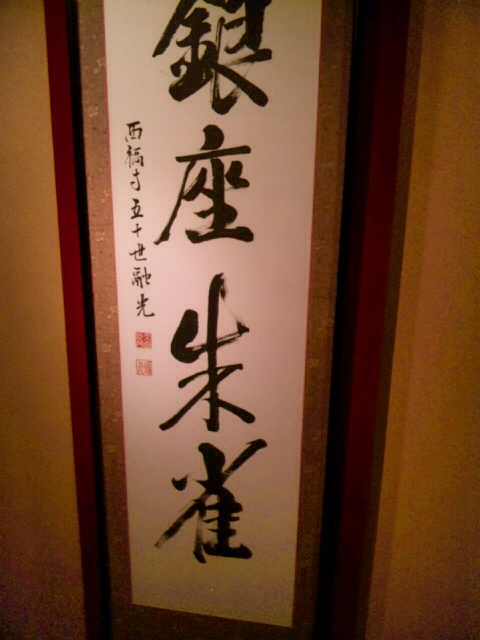 銀座朱雀
西福寺五十世融光